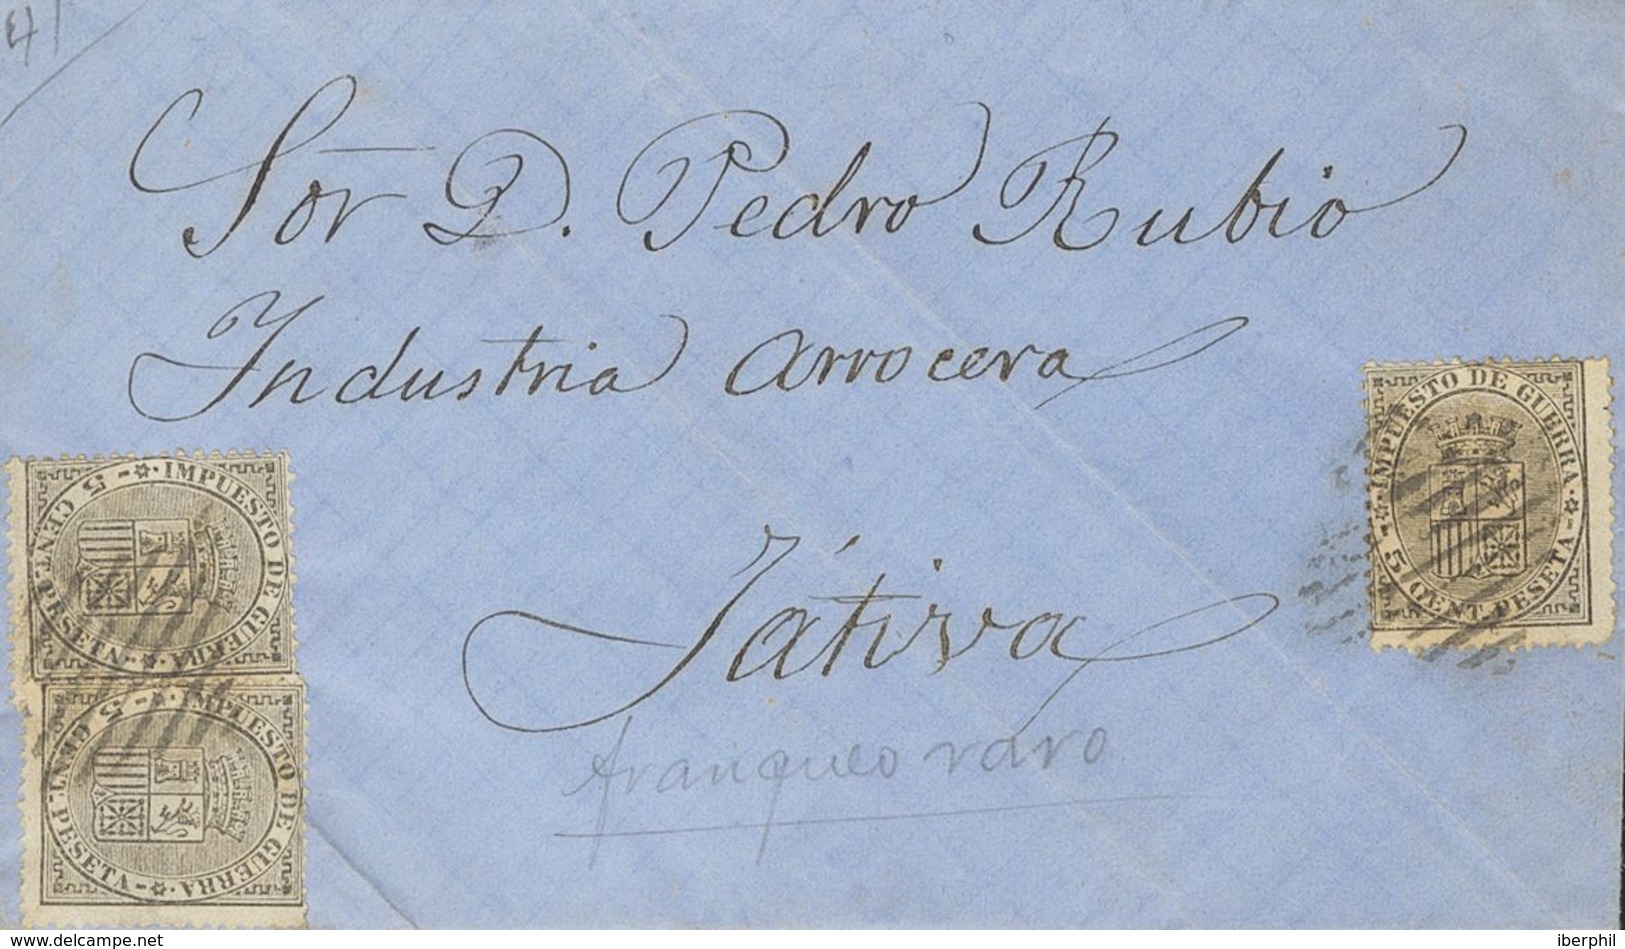 41
Sōr D. Pedro Rubio
Industria arrocera
Játiva
franqueo raro
IMPUESTO DE GUERRA
5 CENT. PESETA
IMPUESTO DE GUERRA
5 CENT. PESETA
IMPUESTO DE GUERRA
5 CENT. PESETA
www.delcampe.net
iberphil